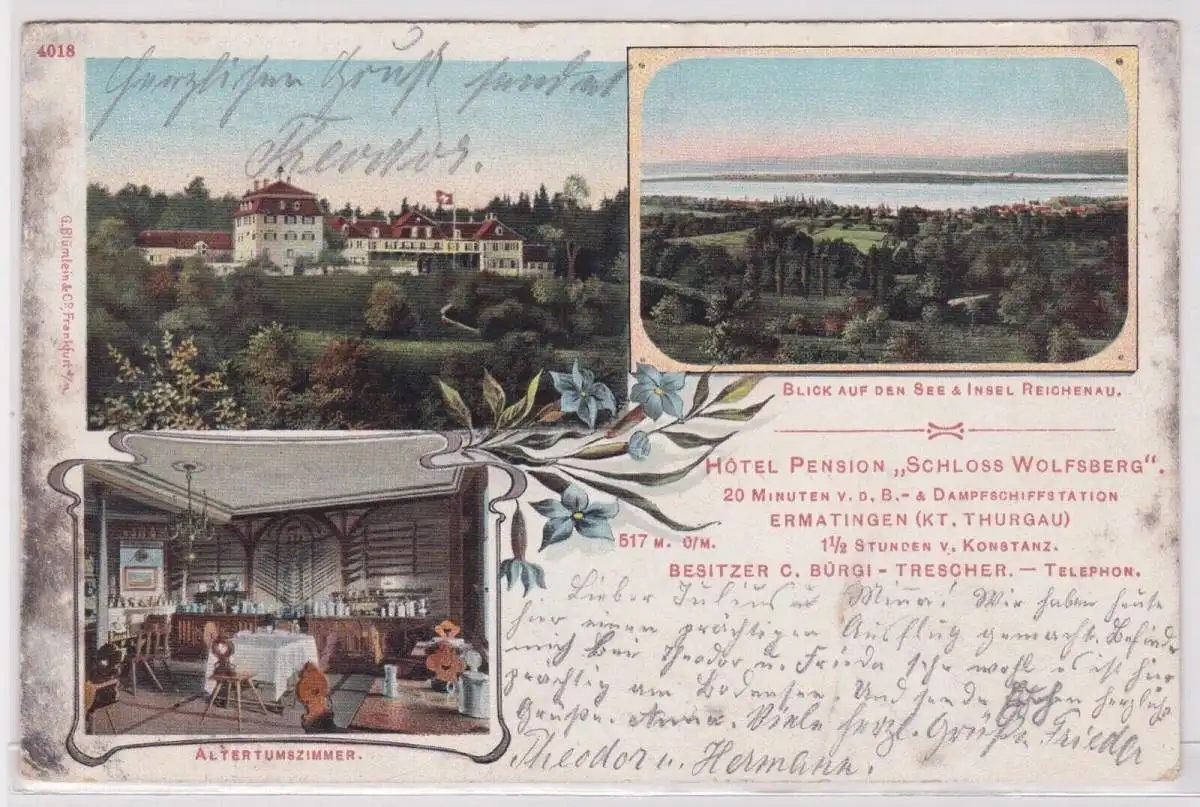 4018
Herzlichen Gruß sendet
Theodor.
G. Blümlein & Co., Frankfurt a/M.
BLICK AUF DEN SEE & INSEL REICHENAU.
HÔTEL PENSION „SCHLOSS WOLFSBERG“.
20 MINUTEN V. D. B.- & DAMPFSCHIFFSTATION
ERMATINGEN (KT. THURGAU)
517 M. Ü/M.
1½ STUNDEN V. KONSTANZ.
BESITZER C. BÜRGI-TRESCHER. — TELEPHON.
ALTERTUMSZIMMER.
Lieber Julius u Mina! Wir haben heute
hier einen prächtigen Ausflug gemacht. Befinde
mich bei Theodor u. Frieda sehr wohl es ist hier
prächtig am Bodensee. Und sende Euch herzliche
Grüße. Anna. Viele herzl. Grüße Frieda
Theodor u. Hermann.